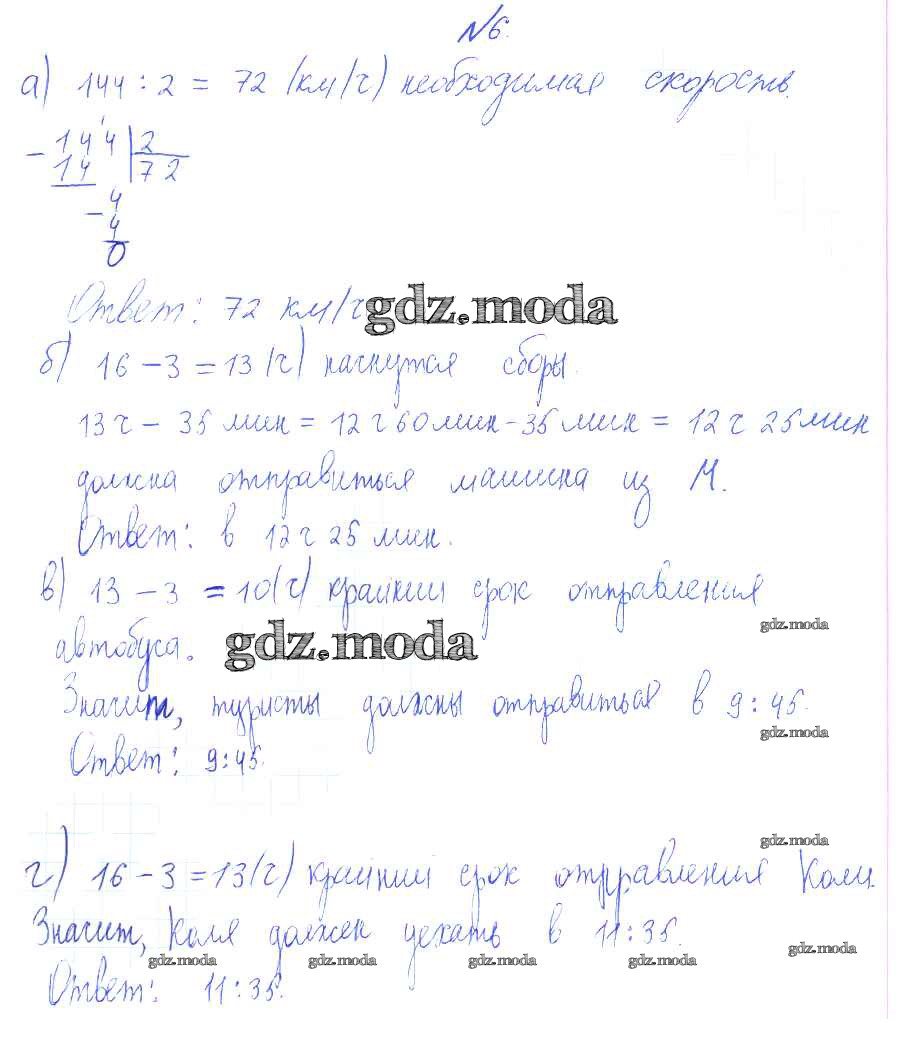 №6.
а) 144 : 2 = 72 (км/ч) необходимая скорость.
- 144 | 2
14 | 72
- 4
4
0
Ответ: 72 км/ч
gdz.moda
б) 16 - 3 = 13 (ч) начнутся сборы.
13 ч - 35 мин = 12 ч 60 мин - 35 мин = 12 ч 25 мин
должна отправиться машина из М.
Ответ: в 12 ч 25 мин.
в) 13 - 3 = 10 (ч) крайний срок отправления
gdz.moda
автобуса.
gdz.moda
Значит, туристы должны отправиться в 9:45.
gdz.moda
Ответ: 9:45.
gdz.moda
г) 16 - 3 = 13 (ч) крайний срок отправления Коли.
Значит, Коля должен уехать в 11:35.
gdz.moda gdz.moda gdz.moda gdz.moda gdz.moda
Ответ: 11:35.